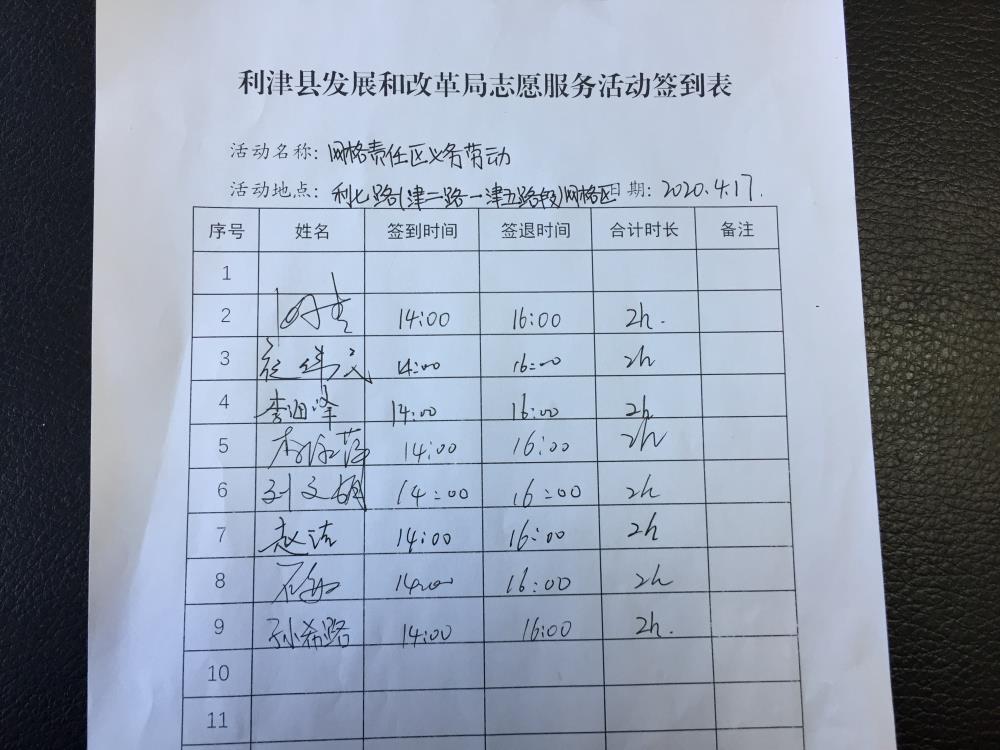 利津县发展和改革局志愿服务活动签到表
活动名称：网格责任区义务劳动
活动地点：利七路(津二路一津五路段)网格区日期：2020.4.17.
序号 姓名 签到时间 签退时间 合计时长 备注
1
2 14:00 16:00 2h.
3 14:00 16:00 2h
4 14:00 16:00 2h
5 14:00 16:00 2h
6 刘文娟 14:00 16:00 2h
7 赵洁 14:00 16:00 2h
8 14:00 16:00 2h
9 孙希路 14:00 16:00 2h.
10
11